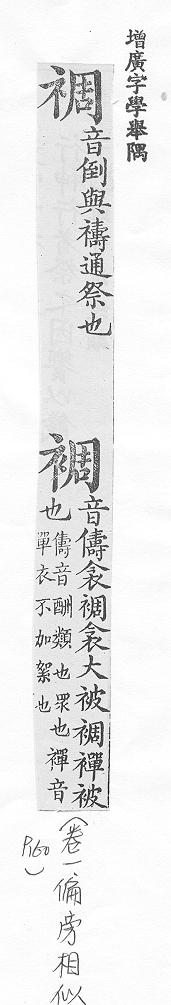 增廣字學舉隅
禂
音倒與禱通祭也
裯
音儔衾裯衾大被裯襌被
也
儔音酬類也眾也襌音
單衣不加絮也
(卷一偏旁相似
P.160)